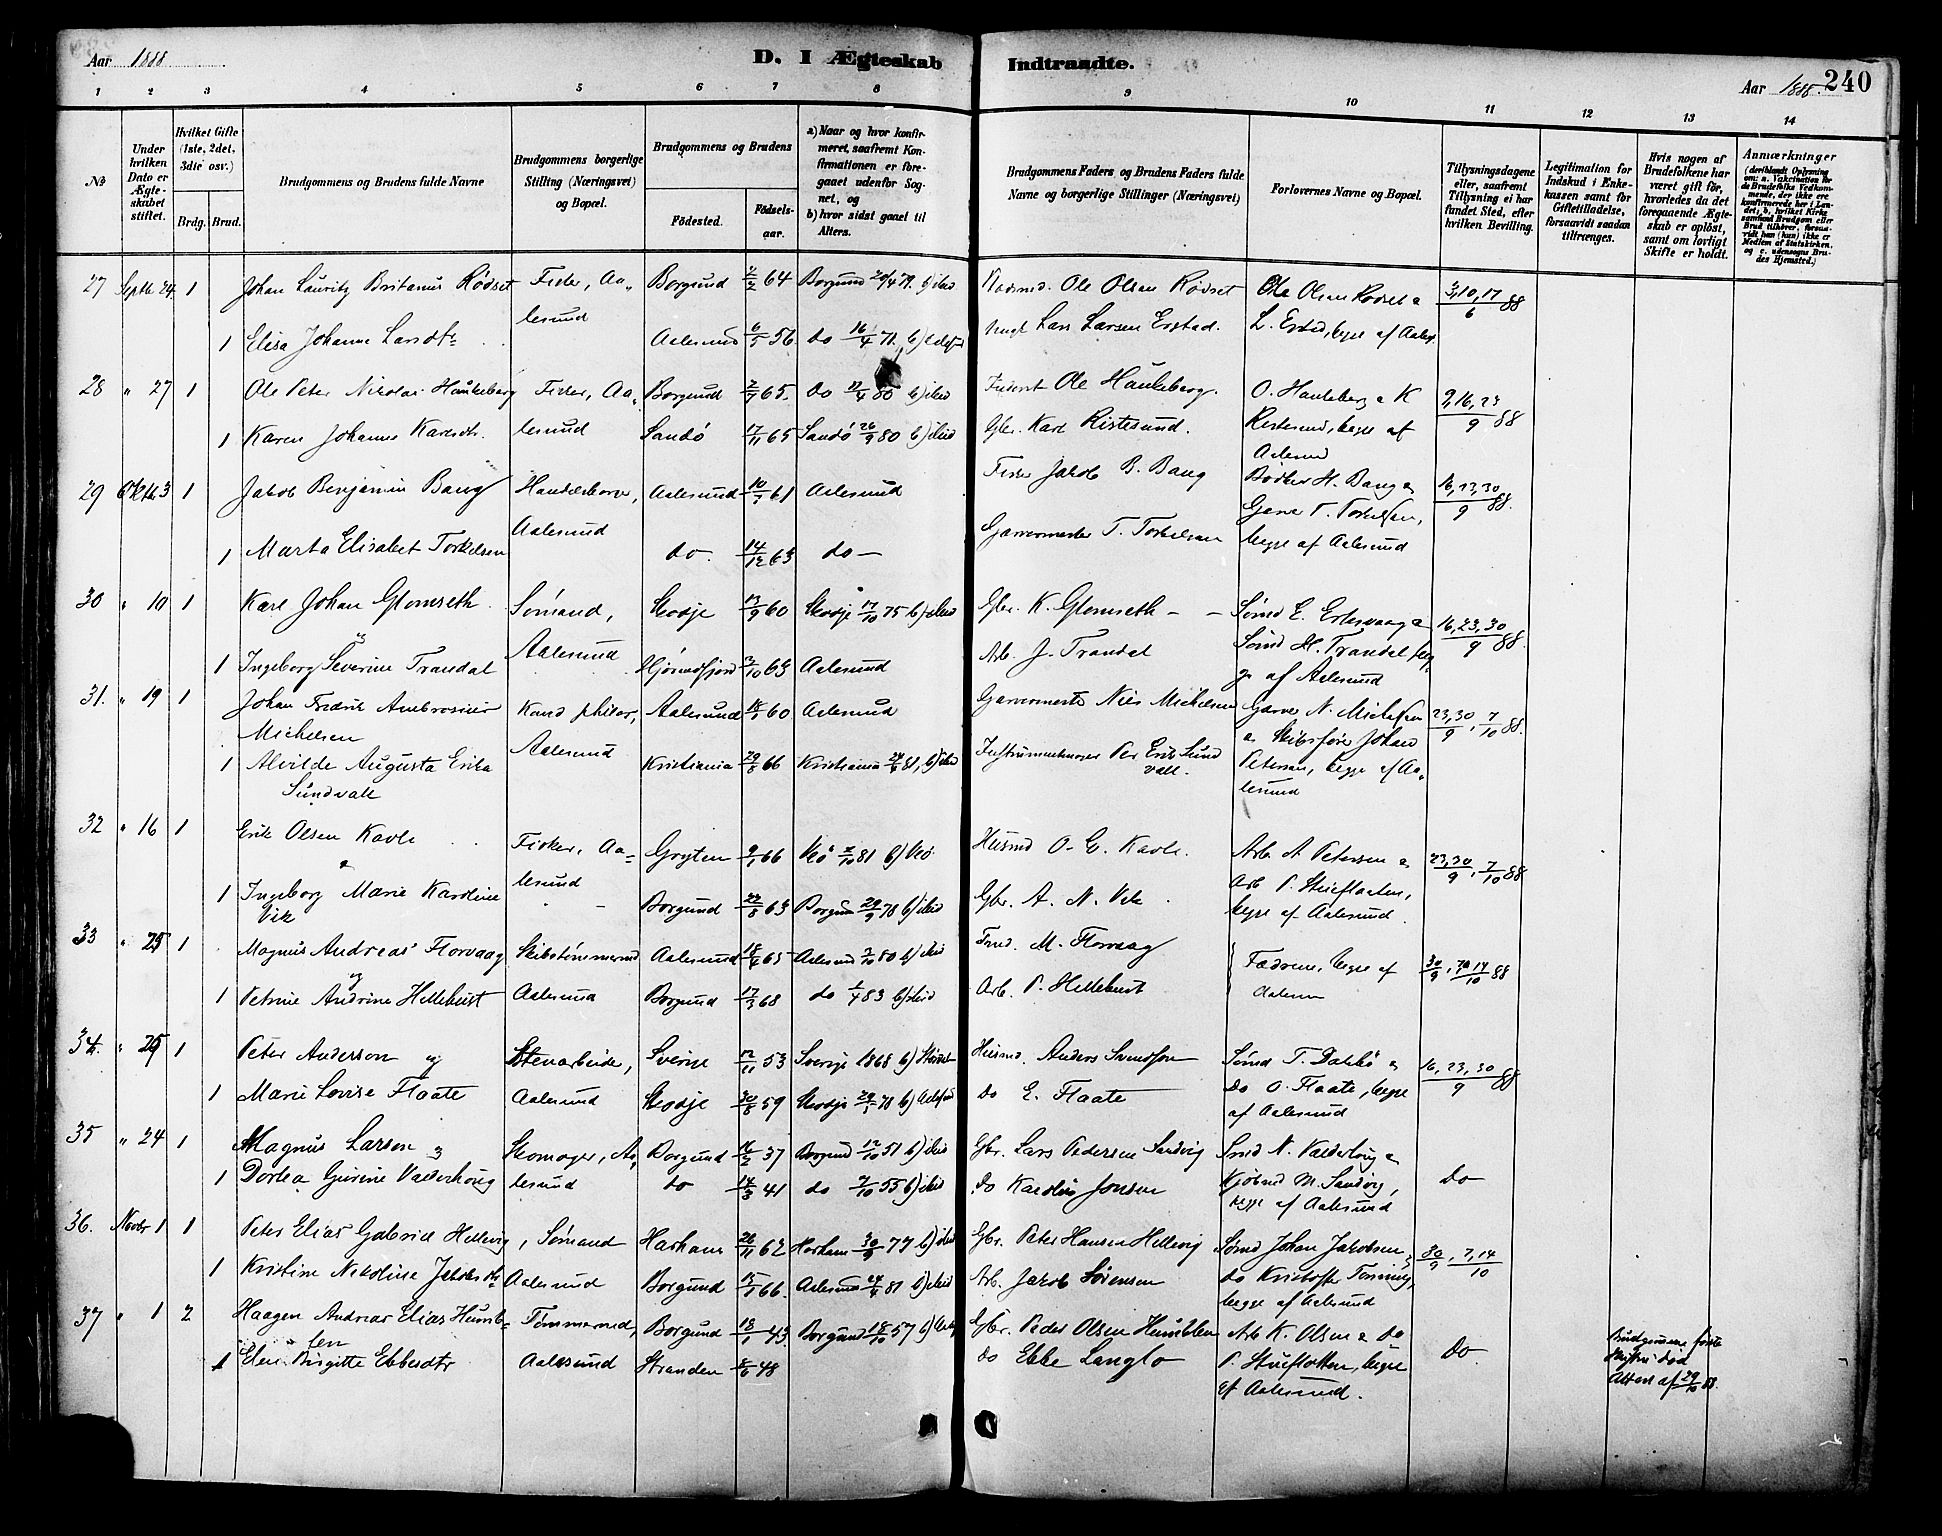 Aar 1888
D. I Ægteskab Indtraadte.
Aar 1888. 240
1 2 3 4 5 6 7 8 9 10 11 12 13 14
No
Under hvilken Dato er Ægteskabet stiftet.
Hvilket Gifte (1ste, 2det, 3die osv.)
Brdg. Brud.
Brudgommens og Brudens fulde Navne
Brudgommens borgerlige Stilling (Næringsvei) og Bopæl.
Brudgommens og Brudens
Fødested.
Fødselsaar.
a) Naar og hvor konfirmeret, saafremt Konfirmationen er foregaaet udenfor Sognet, og
b) hvor sidst gaaet til Alters.
Brudgommens Faders og Brudens Faders fulde Navne og borgerlige Stillinger (Næringsvei)
Forlovernes Navne og Bopæl.
Tillysningsdagene eller, saafremt Tillysning ei har fundet Sted, efter hvilken Bevilling.
Legitimation for Indskud i Enkekassen samt for Giftetilladelse, forsaavidt saadan tiltrænges.
Hvis nogen af Brudefolkene har været gift før, hvorledes da det foregaaende Ægteskab er opløst, samt om lovligt Skifte er holdt.
Anmærkninger
27 Septb. 24 1 Johan Lauritz Britanus Rødset Fisker, Aa- Borgund 64 Borgund 79. b) ibid Ole Olsen Rødset Ole Olsen Rødset & 3,10,17/6 88
1 Elisa Johanne Larsdtr lesund Aalesund 6/5 56 do 16/4 71 b) Lars Larsen Erstad. L. Erstad, begge af Aales.
28 " 27 1 Ole Peter Nikolai Haukeberg Fisker, Aa- Borgund 65. do 80 b) ibid Ole Haukeberg. O. Haukeberg & K 9,16,23/9 88
1 Karen Johanne Karlsdtr. lesund Sandø 17/11 65 Sandø 26/9 80 b) ibid Gbr. Karl Ristesund. Ristesund, begge af
Aalesund
29 Oktb. 3 1 Jakob Benjamin Bang Handelsborger, Aalesund 61 Aalesund Fisker Jakob B. Bang Bødker H. Bang & 16,23,30/9 88.
Aalesund Garver T. Torkelsen,
1 Marta Elisabet Torkelsen do. 14/12 63 do — Garvermester T. Torkelsen begge af Aalesund
30 " 10 1 Karl Johan Glomseth Sømand, Skodje 13/9 60 Skodje 17/10 75 b) ibid Gbr. K. Glomseth — Sømd E. Ertesvaag & 16,23,30/9 88.
og
1 Ingeborg Severine Trandal Aalesund Hjørundfjord 63 Aalesund Arb. J. Trandal Sømd H. Trandal beg-
ge af Aalesund
31. " 19 1 Johan Fredrik Ambrosius Kand. philos, Aalesund 60 Aalesund Garvermester Nils Michelsen Garver N. Michelsen 23,30/9, 7/10 88.
Michelsen & Skibsfører Johan
1 Alvilde Augusta Erika Aalesund Kristiania 29/8 66 Kristiania 81, b) ibid Instrumentmager Per Erik Sund Petersen, begge af Aa-
Sundvall vall. lesund
32 " 16 1 Erik Olsen Kavli Fisker, Aa- Grytten 66 Veø 81 b) Veø Husmd O. E. Kavli. Arb. A Petersen & 23,30/9, 7/10 88
1 Ingeborg Marie Karoline lesund Borgund 22/8 63 Borgund 29/9 78 b) ibid Gbr. A. N. Vik Arb P. Stueflaaten,
Vik begge af Aalesund.
33 " 25 1 Magnus Andreas Florvaag Skibstømmermd Aalesund 65 Aalesund 80 b) ibid M. Florvaag Fædrene, begge af 30/9, 7 14/10 88
og
1 Petrine Andrine Hillebust Aalesund Borgund 17/3 68 do 83 b) ibid Arb. P. Hillebust Aalesun
34. " 25 1 Peter Anderson og Stenarbeider, Sverige 12/11 53 Sverige 1868 b) Husmd. Anders Svendson Sømd T. Dalbø & 16,23,30/9 88
1 Marie Lovise Flaate Aalesund Skodje 59 Skodje 78 b) do E. Flaate do O. Flaate, begge
af Aalesund
35 " 24 1 Magnus Larsen & Skomager, Aa- Borgund 37 Borgund 12/10 51 b) ibid Gbr. Lars Pedersen Sandvig N. Valderhoug & do
1 Dortea Gurine Valderhoug lesund do 14/3 41 do 55 b) ibid do Karolus Jonsen M. Sandvig,
begge af Aalesund
36. Novbr 1 1 Peter Elias Gabriel Hellevig, Sømand Harham 26/11 62 Harham 30/9 77 b) ibid Gbr. Peter Hansen Hellevig Sømd Johan Jakobsen, 30/9, 7,14/10
1 Kristine Nikoline Jakobsdtr Aalesund Borgund 66. Aalesund 24/4 81 b) ibid Arb. Jakob Sørensen do Kristoffer Tønning,
begge af Aalesund
37 " 1 2 Haagen Andreas Elias Humb- Tømmermd, Borgund 43. Borgund 18/10 57 b) Gbr. Peder Olsen Humblen Arb K. Olsen & do do.
len
1 Elen Birgitte Ebbesdtr Aalesund Stranden 48 do Ebbe Langlo P. Stueflotten, begge
af Aalesund.
Brudgommens første Hustru død
Attest af 29/10 88.